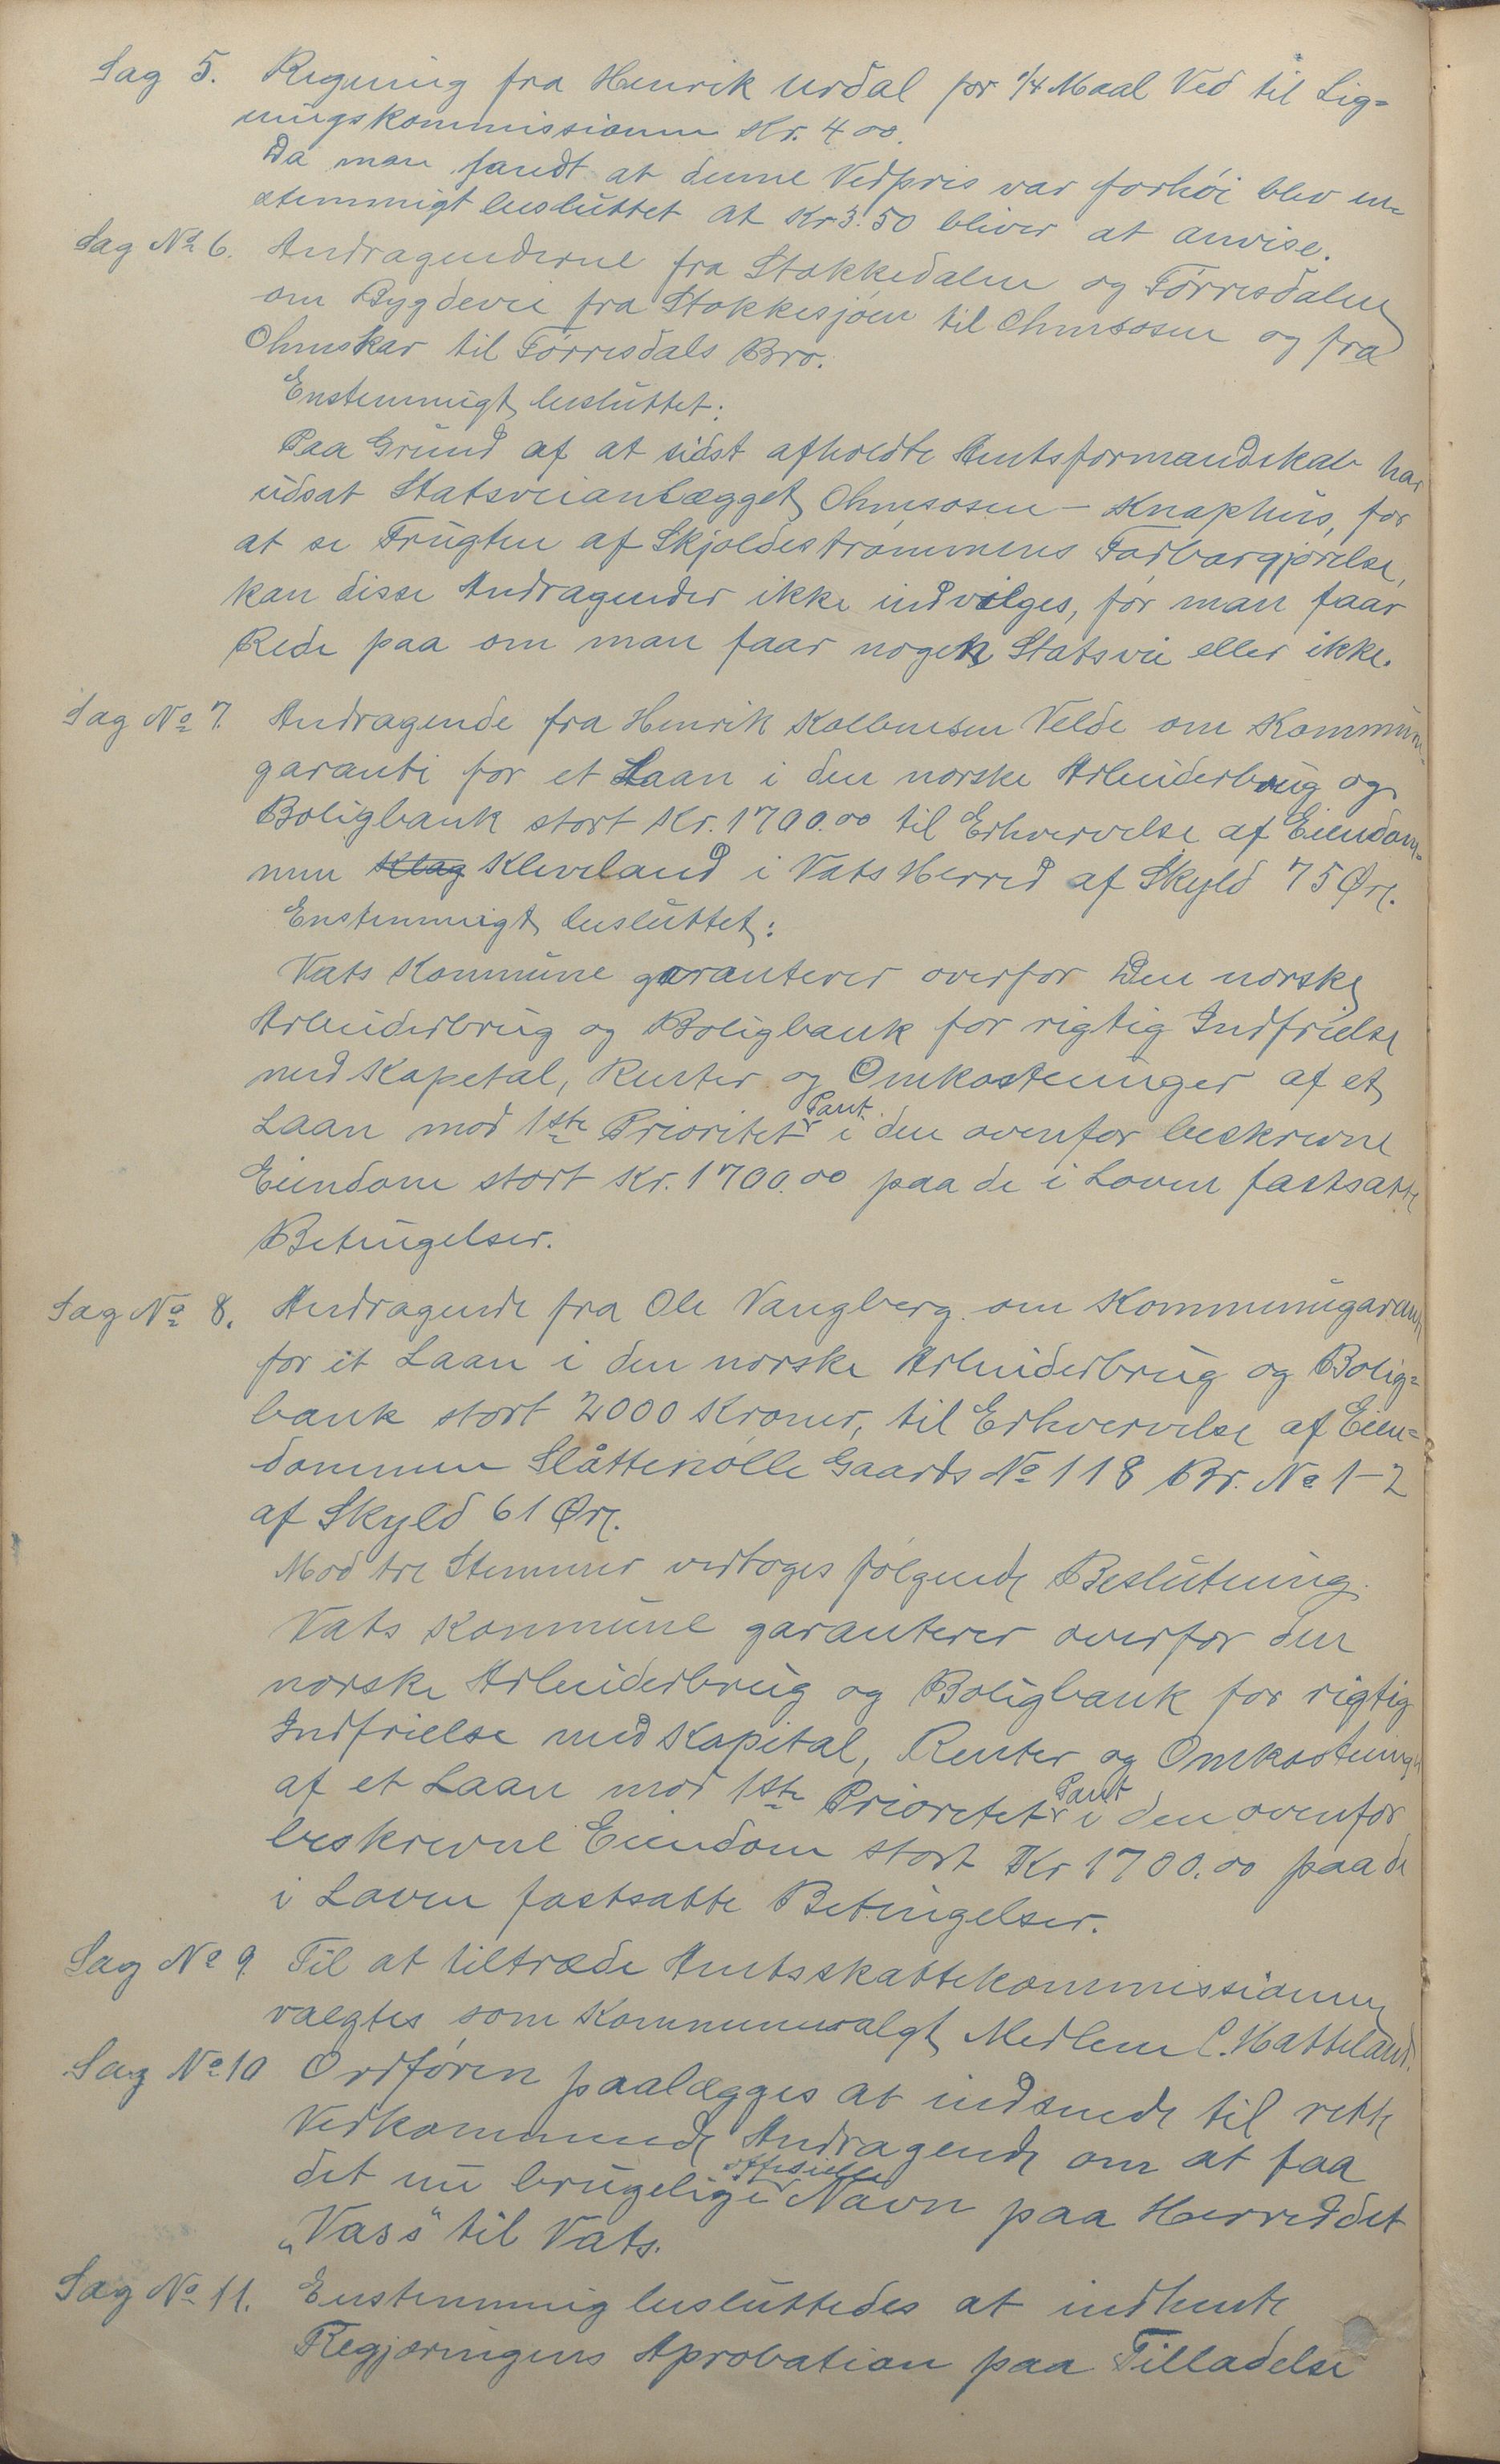 Sag 5. Regning fra Henrik Urdal for 1/4 Maal Ved til Lig=
ningskommissionen Kr. 4 00.
Da man fandt at denne Vedpris var forhøi blev en=
stemmigt besluttet at Kr 3.50 bliver at anvise.
Sag No 6. Andragenderne fra Stokkedalen og Førresdalen
om Bygdevei fra Stokkesjøen til Ohmsosen og fra
Ohmskar til Førresdals Bro.
Enstemmigt besluttet:
Paa Grund af at sidst afholdte Amtsformandskab har
udsat Statsveianlægget Ohmsosen - Knaphus, for
at se Frugten af Skjoldestrømmens Farbargjørelse,
kan disse Andragender ikke indvilges, før man faar
Rede paa om man faar nogen Statsvei eller ikke.
Sag No 7. Andragende fra Henrik Kolbensen Velde om Kommune=
garanti for et Laan i den norske Arbeiderbrug og
Boligbank stort Kr. 1700.00 til Erhvervelse af Eiendom=
men Klag Kleveland i Vats Herred af Skyld 75 Øre.
Enstemmigt besluttet:
Vats Kommune garanterer overfor Den norske
Arbeiderbrug og Boligbank for rigtig Indfrielse
med Kapetal, Renter og Omkostninger af et
Laan mod 1ste Prioritets Pant i den ovenfor beskrevne
Eiendom stort Kr. 1700.00 paa de i Loven fastsatte
Betingelser.
Sag No 8. Andragende fra Ole Vangberg om Kommunegaranti
for et Laan i den norske Arbeiderbrug og Bolig=
bank stort 2000 Kroner, til Erhvervelse af Eien=
dommen Slåttenølle Gaards No 118 Br. No 1-2
af Skyld 61 Øre.
Mod tre Stemmer vedtoges følgende Beslutning.
Vats Kommune garanterer overfor den
norske Arbeiderbrug og Boligbank for rigtig
Indfrielse med Kapital, Renter og Omkostninger
af et Laan mod 1ste Prioretets Pant i den ovenfor
beskrevne Eiendom stort Kr 1700.00 paa de
i Loven fastsatte Betingelser.
Sag No 9. Til at tiltræde Amtsskattekommissionen
valgtes som Kommunevalgt Medlem C. Hatteland.
Sag No 10 Ordføren paalægges at indsende til rette
Vedkommende Andragende om at faa
det nu brugelige offisielle Navn paa Herreddet
„Vass" til Vats.
Sag No 11. Enstemmig besluttedes at indhente
Regjøringens Aprobation paa Tilladelse